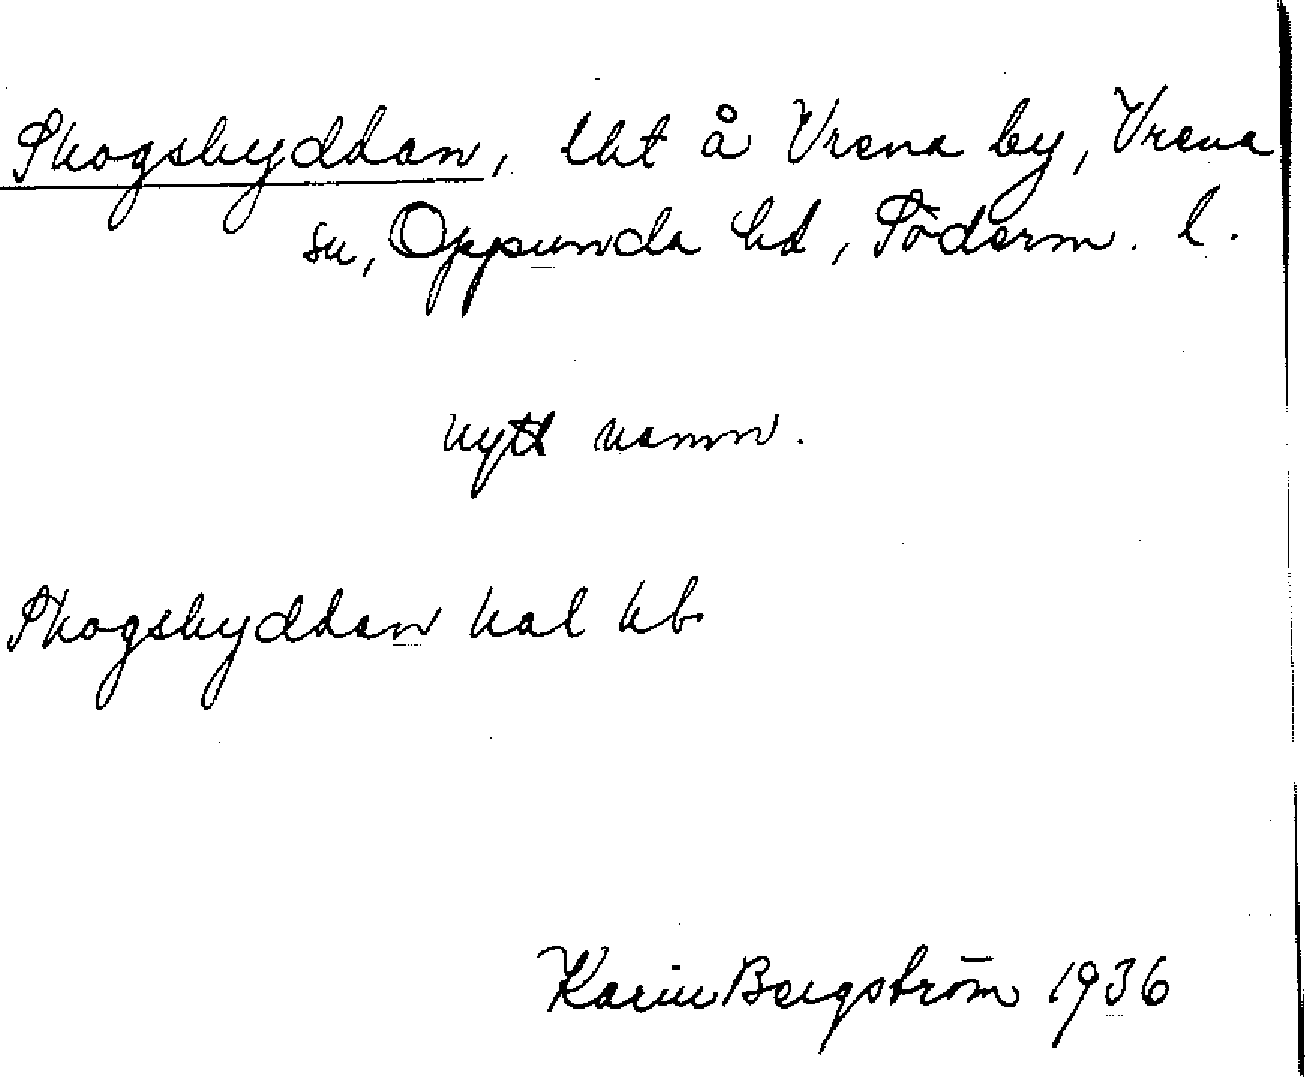 Skogshyddan, lht å Vrena by, Vrena
sn, Oppunda hd, Söderm. l.
nytt namn.
Skogshyddan kal kb
Karin Bergström 1936